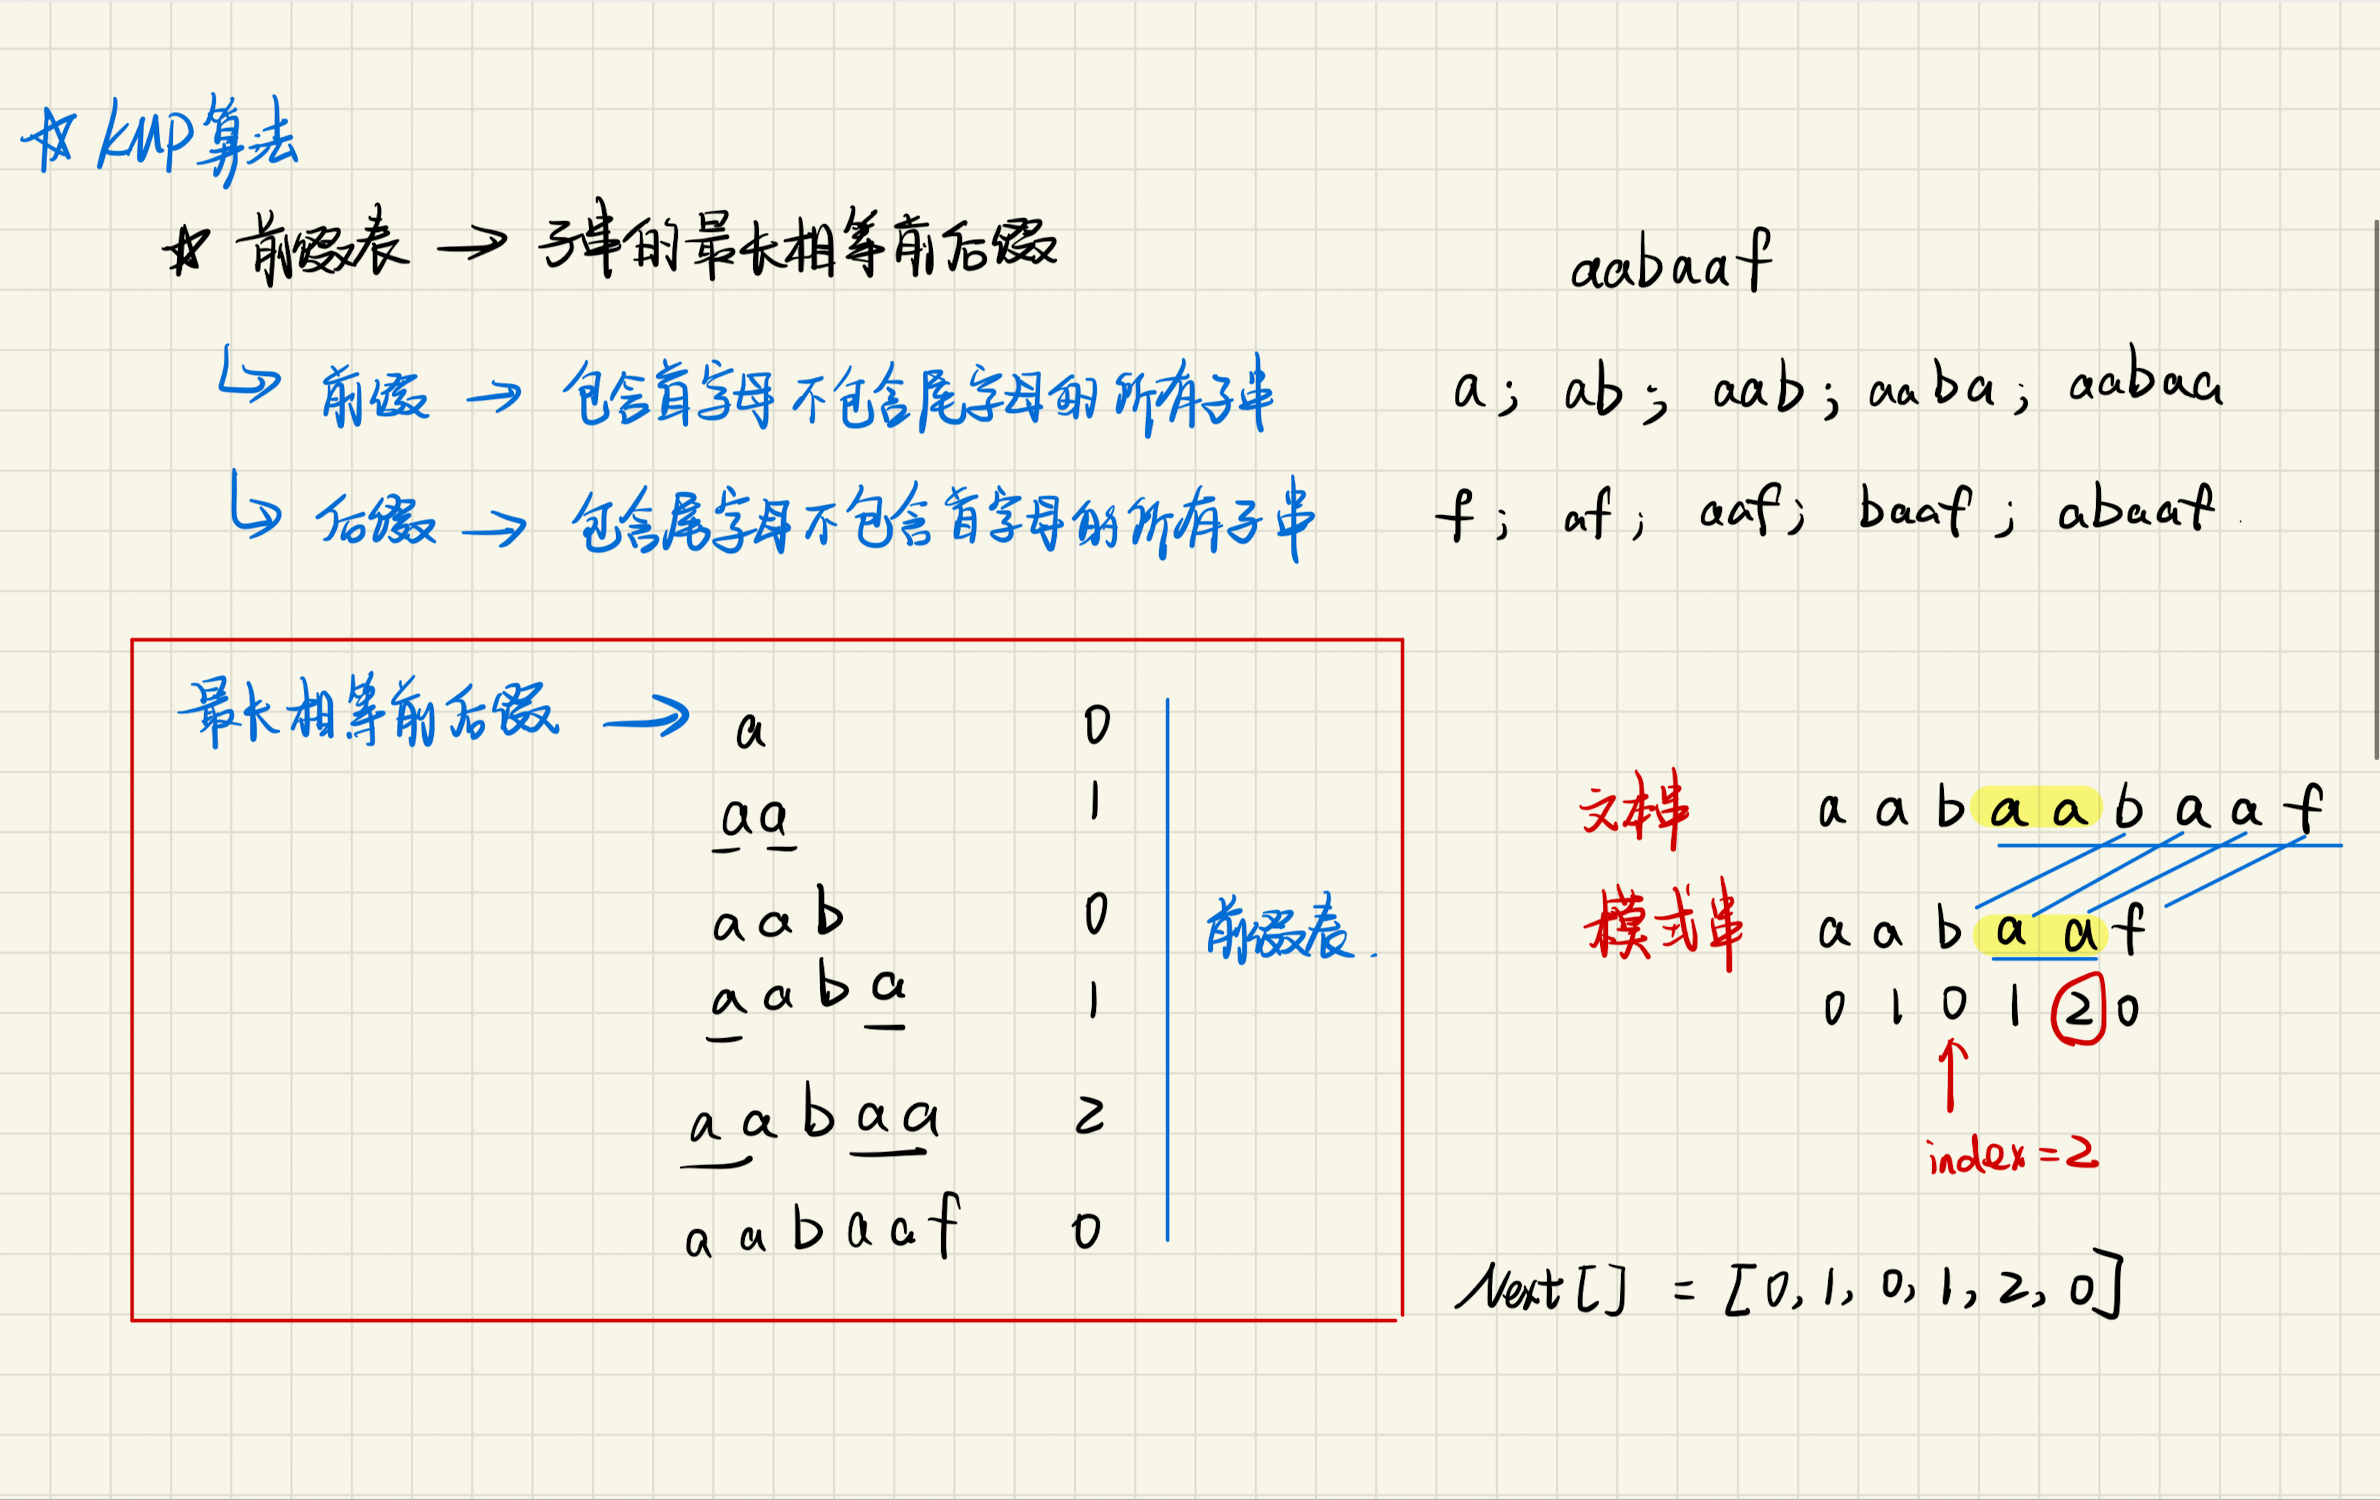 ☆ KMP算法
☆ 前缀表 → 子串的最长相等前后缀
aabaaf
↳ 前缀 → 包含首字母不包含尾字母的所有子串
a; ab; aab; aaba; aabaa
↳ 后缀 → 包含尾字母不包含首字母的所有子串
f; af; aaf; baaf; abaaf.
最长相等前后缀 → a 0
aa 1
aab 0
aaba 1
aabaa 2
aabaaf 0
前缀表.
文本串 a a b a a b a a f
模式串 a a b a a f
0 1 0 1 2 0
↑
index=2
Next[] = [0, 1, 0, 1, 2, 0]